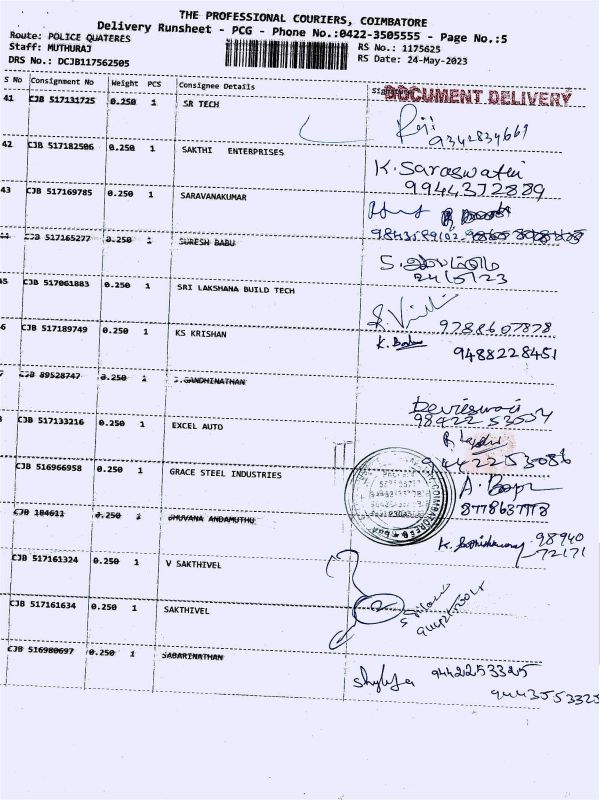 THE PROFESSIONAL COURIERS, COIMBATORE
Delivery Runsheet - PCG - Phone No.:0422-3505555 - Page No.:5
Route: POLICE QUATERES
Staff: MUTHURAJ
DRS No.: DCJB117562505
RS No.: 1175625
RS Date: 24-May-2023
S No Consignment No Weight PCS Consignee Details
DOCUMENT DELIVERY
41 CJB 517131725 0.250 1 SR TECH
9342834669
42 CJB 517182506 0.250 1 SAKTHI ENTERPRISES
K. Saraswathi
9944372889
43 CJB 517169785 0.250 1 SARAVANAKUMAR
44 CJB 517165277 0.250 1 SURESH BABU
24/5/23
45 CJB 517061883 0.250 1 SRI LAKSHANA BUILD TECH
9788607878
6 CJB 517189749 0.250 1 KS KRISHAN
9488228451
7 CJB 89528747 0.250 1 S.GANDHINATHAN
8 CJB 517133216 0.250 1 EXCEL AUTO
9842253004
9442253086
CJB 516966958 0.250 1 GRACE STEEL INDUSTRIES
CJB 184611 0.250 BHUVANA ANDAMUTHU
98940
72171
CJB 517161324 0.250 1 V SAKTHIVEL
CJB 517161634 0.250 1 SAKTHIVEL
CJB 516980697 0.250 1 SABARINATHAN
9442253325
9443553325